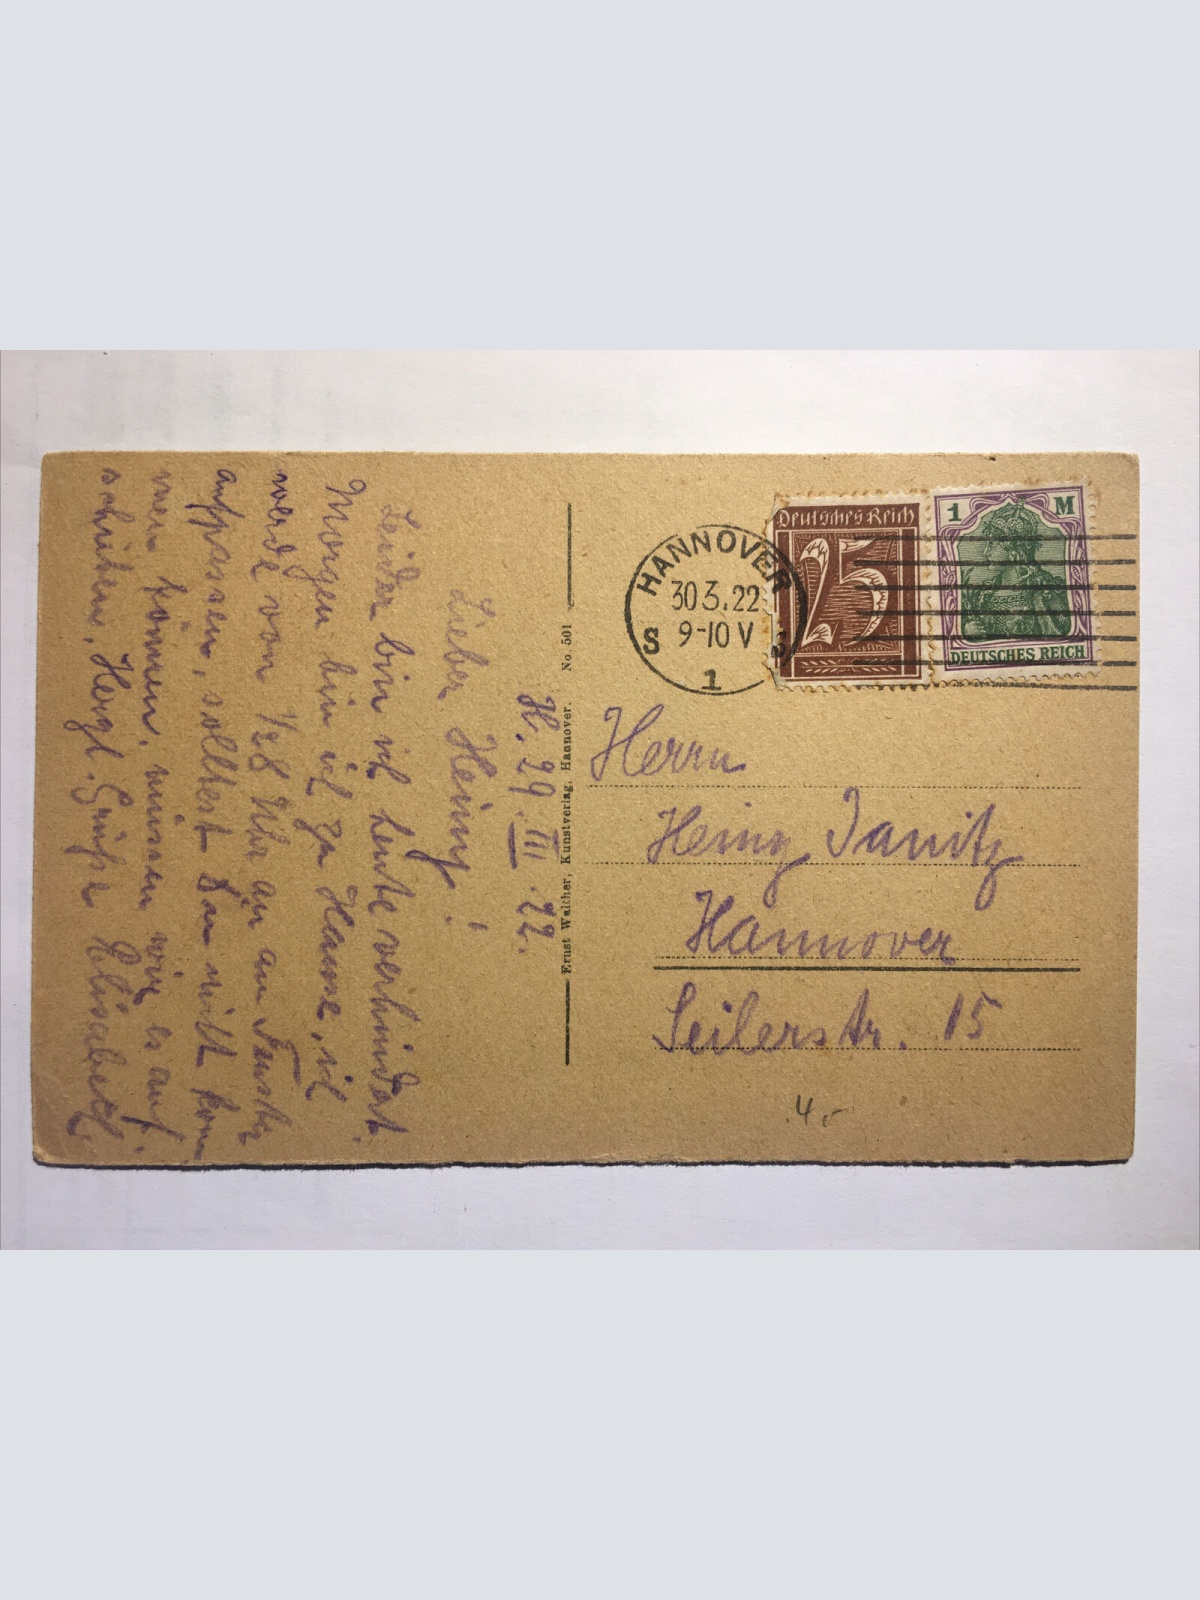 H. 29. III. 22.
Lieber Heinz!
Leider bin ich heute verhindert.
Morgen bin ich zu Hause, ich
werde von 1/28 Uhr an am Fenster
aufpassen, solltest Du nicht kom
men können, müssen wir es auf-
schieben. Herzl. Grüße Elisabeth.
Ernst Walther, Kunstverlag, Hannover. No. 501
HANNOVER
30.3.22
9-10 V
S S
1
Deutsches Reich
25
1 M
DEUTSCHES REICH
Herrn
Heinz Janitz
Hannover
Seilerstr. 15
4.-